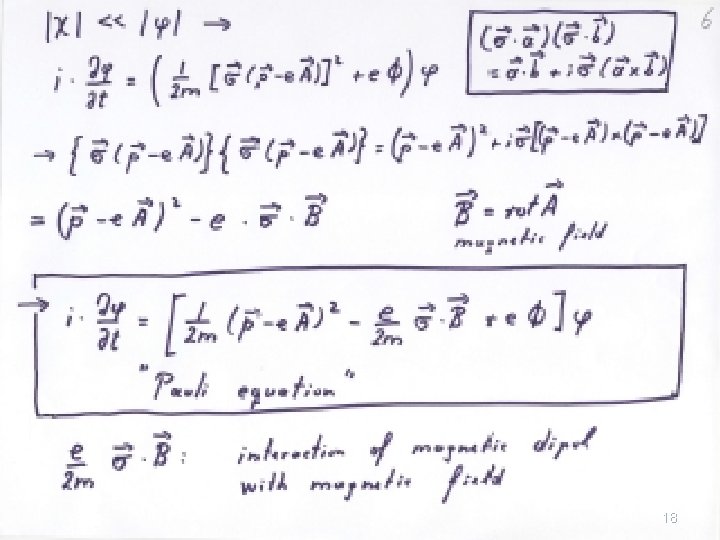 6
|χ| << |φ| →
(σ⃗·a⃗)(σ⃗·b⃗)
= a⃗·b⃗ + iσ⃗(a⃗×b⃗)
i · ∂φ/∂t = (1/2m [σ⃗(p⃗-eA⃗)]² + eΦ) φ
→ {σ⃗(p⃗-eA⃗)}{σ⃗(p⃗-eA⃗)} = (p⃗-eA⃗)² + iσ⃗[(p⃗-eA⃗)×(p⃗-eA⃗)]
= (p⃗-eA⃗)² - e · σ⃗ · B⃗
B⃗ = rot A⃗
magnetic field
→ i · ∂φ/∂t = [1/2m (p⃗-eA⃗)² - e/2m σ⃗·B⃗ + eΦ] φ
"Pauli equation"
e/2m σ⃗·B⃗ : interaction of magnetic dipol
with magnetic field
18